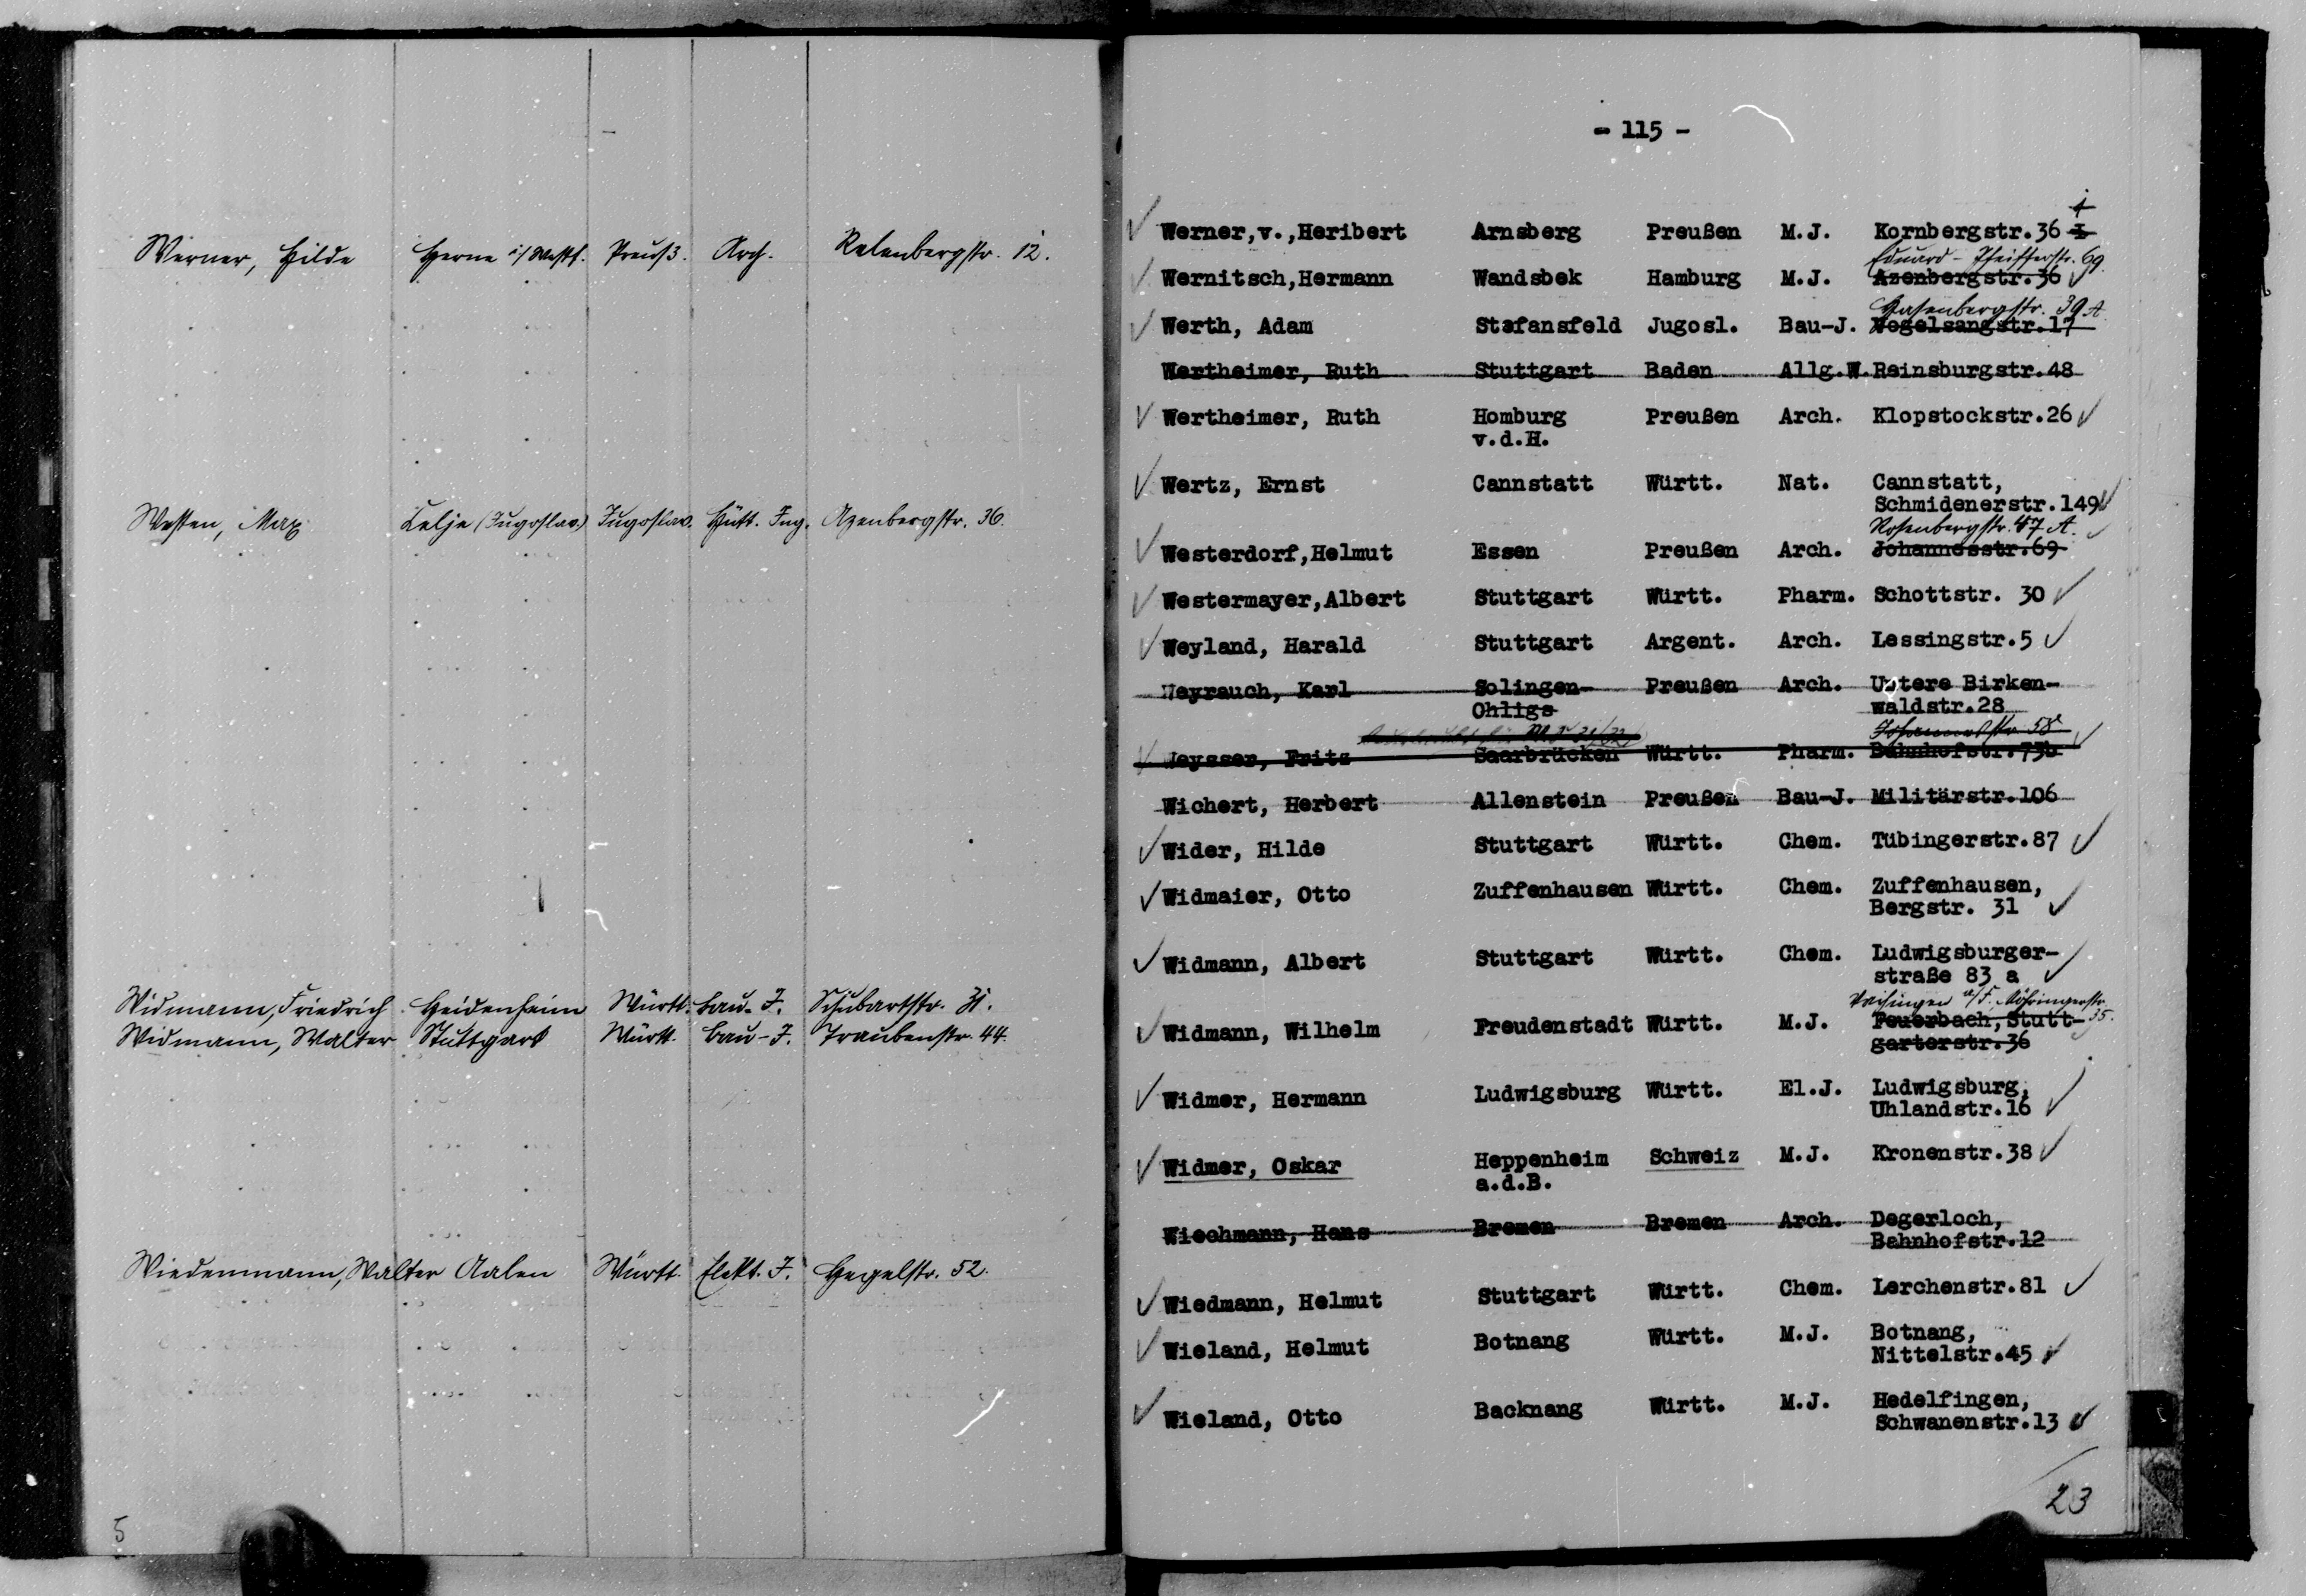 Werner, Hilde Herne i/Westf. Preuß. Arch. Relenbergstr. 12.
Westen, Max Celje (Jugoslav.) Jugoslav. Hütt. Ing. Azenbergstr. 36.
Widmann, Friedrich Heidenheim Württ. Bau-J. Schubartstr.
Widmann, Walter Stuttgart Württ. Bau-J. Traubenstr. 44.
Wiedenmann, Walter Aalen Württ. Elekt. J. Hegelstr. 52.
5
- 115 -
Werner,v.,Heribert Arnsberg Preußen M.J. Kornbergstr.36 I
Eduard-Pfeifferstr. 69.
Wernitsch,Hermann Wandsbek Hamburg M.J. Azenbergstr.36
Hasenbergstr. 39 A.
Werth, Adam Stefansfeld Jugosl. Bau-J. Vogelsangstr.17
Wertheimer, Ruth Stuttgart Baden Allg.W. Reinsburgstr.48
Wertheimer, Ruth Homburg Preußen Arch. Klopstockstr.26
v.d.H.
Wertz, Ernst Cannstatt Württ. Nat. Cannstatt,
Schmidenerstr.149
Rosenbergstr. 47 A.
Westerdorf,Helmut Essen Preußen Arch. Johannesstr.69
Westermayer,Albert Stuttgart Württ. Pharm. Schottstr. 30
Weyland, Harald Stuttgart Argent. Arch. Lessingstr.5
Weyrauch, Karl Solingen- Preußen Arch. Untere Birken-
Ohligs waldstr.28
Johannesstr. 58
Weysser, Fritz Saarbrücken Württ. Pharm. Bahnhofstr.73b
Wichert, Herbert Allenstein Preußen Bau-J. Militärstr.106
Wider, Hilde Stuttgart Württ. Chem. Tübingerstr.87
Widmaier, Otto Zuffenhausen Württ. Chem. Zuffenhausen,
Bergstr. 31
Widmann, Albert Stuttgart Württ. Chem. Ludwigsburger-
straße 83 a
Vaihingen a/F. Möhringerstr. 35.
Widmann, Wilhelm Freudenstadt Württ. M.J. Feuerbach, Stutt-
garterstr.36
Widmer, Hermann Ludwigsburg Württ. El.J. Ludwigsburg,
Uhlandstr.16
Widmer, Oskar Heppenheim Schweiz M.J. Kronenstr.38
a.d.B.
Wiechmann, Hans Bremen Bremen Arch. Degerloch,
Bahnhofstr.12
Wiedmann, Helmut Stuttgart Württ. Chem. Lerchenstr.81
Wieland, Helmut Botnang Württ. M.J. Botnang,
Nittelstr.45
Wieland, Otto Backnang Württ. M.J. Hedelfingen,
Schwanenstr.13
23